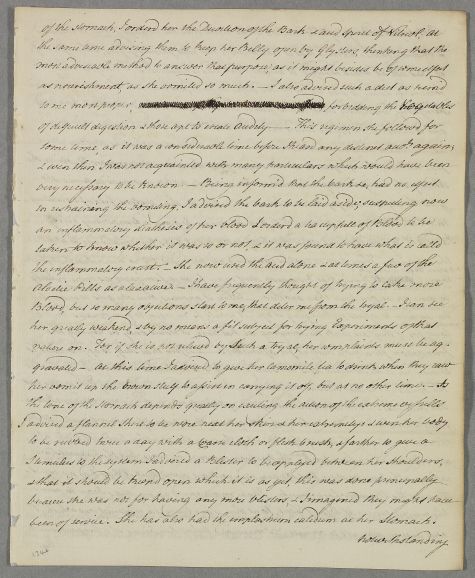 of the stomach, I orderd her the Decoction of the Bark & acid Spirit of Vitriol, at
the same time advising them to keep her Belly open by Glysters, thinking that the
most adviseable method to answer that purpose, as it might besides be of some effect
as nourishment, as she vomited so much. — I also advised such a diet as seemd
to me most proper forbidding the vegetables
of difficult digestion & those apt to create Acidity — This regimen she followed for
some time, as it was a considerable time before I heard any distinct acct. again,
& even then I was not acquainted with many particulars which would have been
very necessary to be known. — Being informed that the bark &c, had no effect
in restraining the vomiting, I advised the bark to be laid aside; suspecting now
an inflammatory diathesis of her blood I orderd a teacupfull of Blood to be
taken to know whether it was so or not, & it was found to have what is calld
the inflammatory crust. — She now used the acid alone & at times a few of the
Aloetic Pills as a laxative — I have frequently thought of trying to take more
Blood, but so many objections start to me, that deter me from the tryal — I can see
her greatly weakend & by no means a fit subject for trying Experiments of that
nature on. For if she is not relieved by such a tryal, her complaints must be ag-
gravated — At this time I advised to give her Camomile tea to drink when they saw
her vomit up the brown stuff to assist in carrying it off, but at no other time. — As
the tone of the stomach depends greatly on exciting the action of the extreme vessells
I advised a flannel Shirt to be wore next her skin & her extremitys & even her body
to be rubbed twice a day with a warm cloth or flesh brush, & farther to give a
Stimulus to the system I advised a Blister to be applyed between her shoulders,
& that it should be turnd open which it is as yet, this was done principally
because she was not for having any more blisters, — I imagined they might have
been of service. She has also had the emplastrum calidum at her Stomach.
notwithstanding